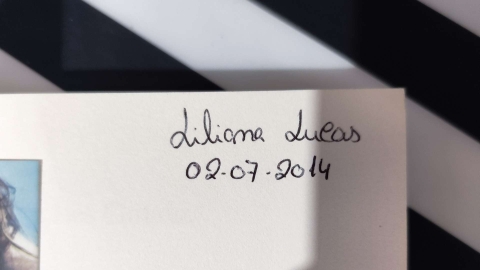 Liliana Lucas
02-07-2014